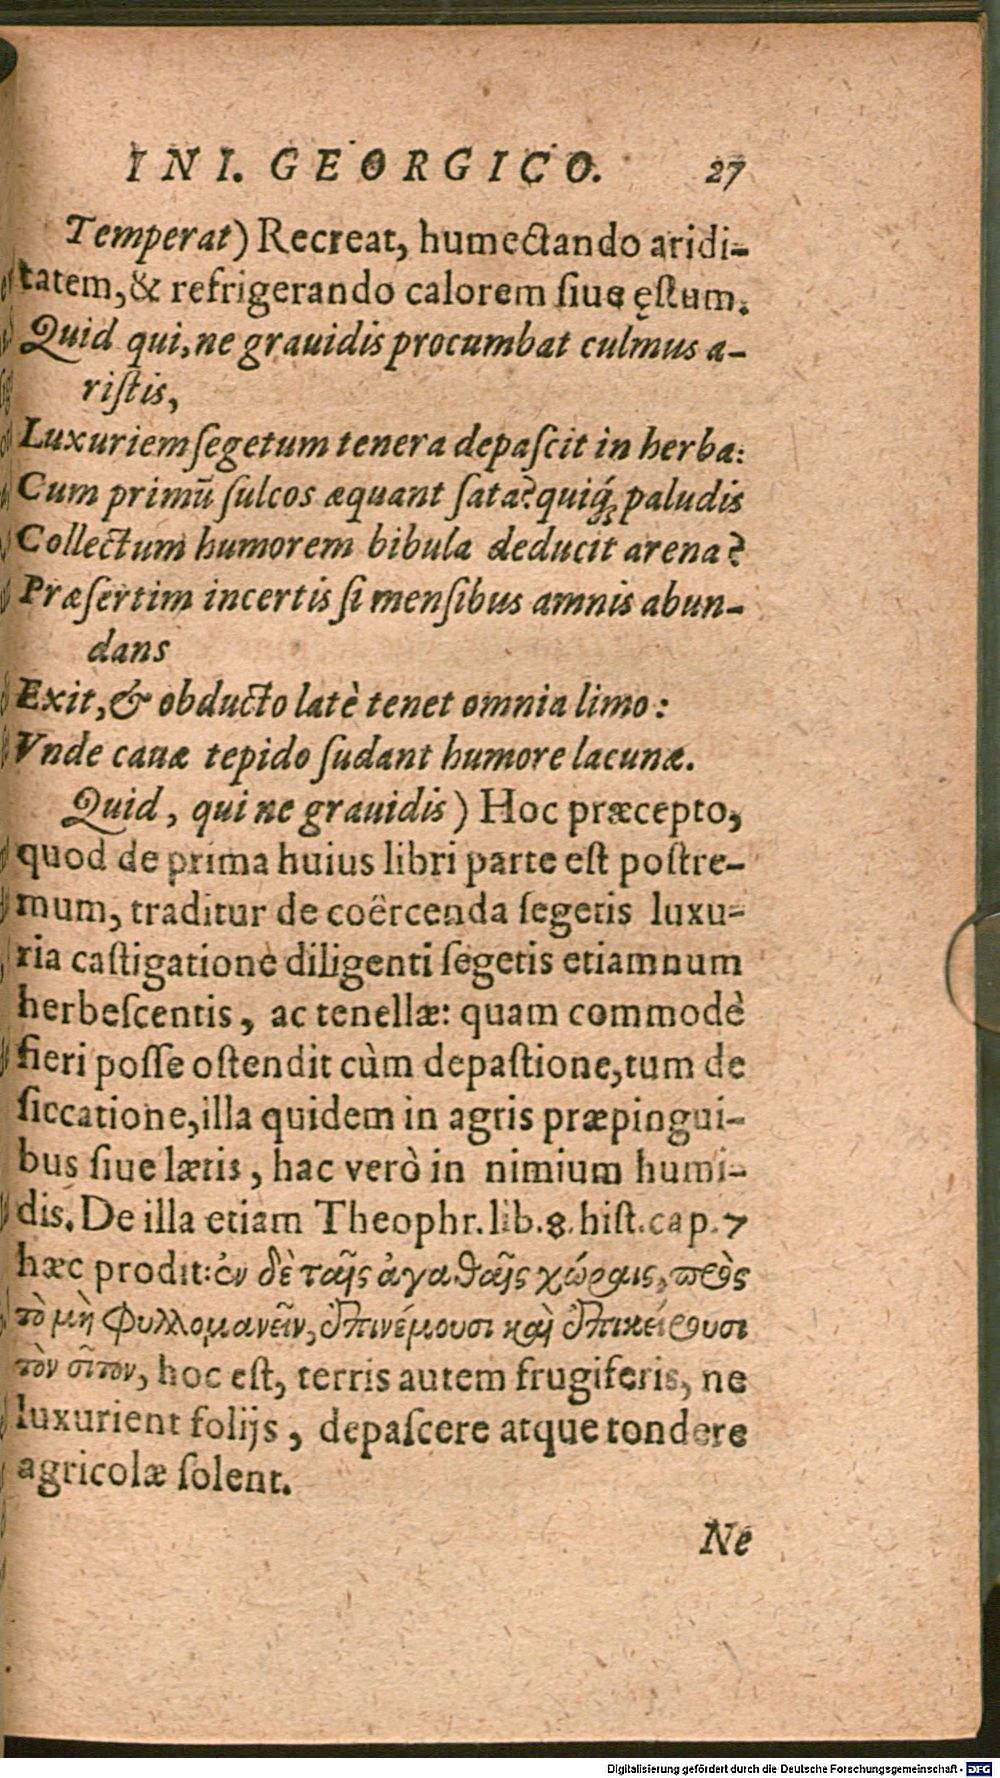 IN I. GEORGICO. 27
Temperat) Recreat, humectando aridi-
tatem, & refrigerando calorem ſiue ęſtum.
Quid qui, ne grauidis procumbat culmus a-
riſtis,
Luxuriem ſegetum tenera depaſcit in herba:
Cum primū ſulcos æquant ſata? quiq́; paludis
Collectum humorem bibula deducit arena?
Præſertim incertis ſi menſibus amnis abun-
dans
Exit, & obducto latè tenet omnia limo:
Vnde cauæ tepido ſudant humore lacunæ.
Quid, qui ne grauidis) Hoc præcepto,
quod de prima huius libri parte eſt poſtre-
mum, traditur de coërcenda ſegetis luxu-
ria caſtigatione diligenti ſegetis etiamnum
herbeſcentis, ac tenellæ: quam commodè
fieri poſſe oſtendit cùm depaſtione, tum de
ſiccatione, illa quidem in agris præpingui-
bus ſiue lætis, hac verò in nimium humi-
dis. De illa etiam Theophr. lib. 8. hiſt. cap. 7
hæc prodit: ἐν δὲ ταῖς ἀγαθαῖς χώραις, πρὸς
τὸ μὴ φυλλομανεῖν, ἐπινέμουσι καὶ ἐπικείρουσι
τὸν σῖτον, hoc eſt, terris autem frugiferis, ne
luxurient folijs, depaſcere atque tondere
agricolæ ſolent.
Ne
Digitalisierung gefördert durch die Deutsche Forschungsgemeinschaft - DFG